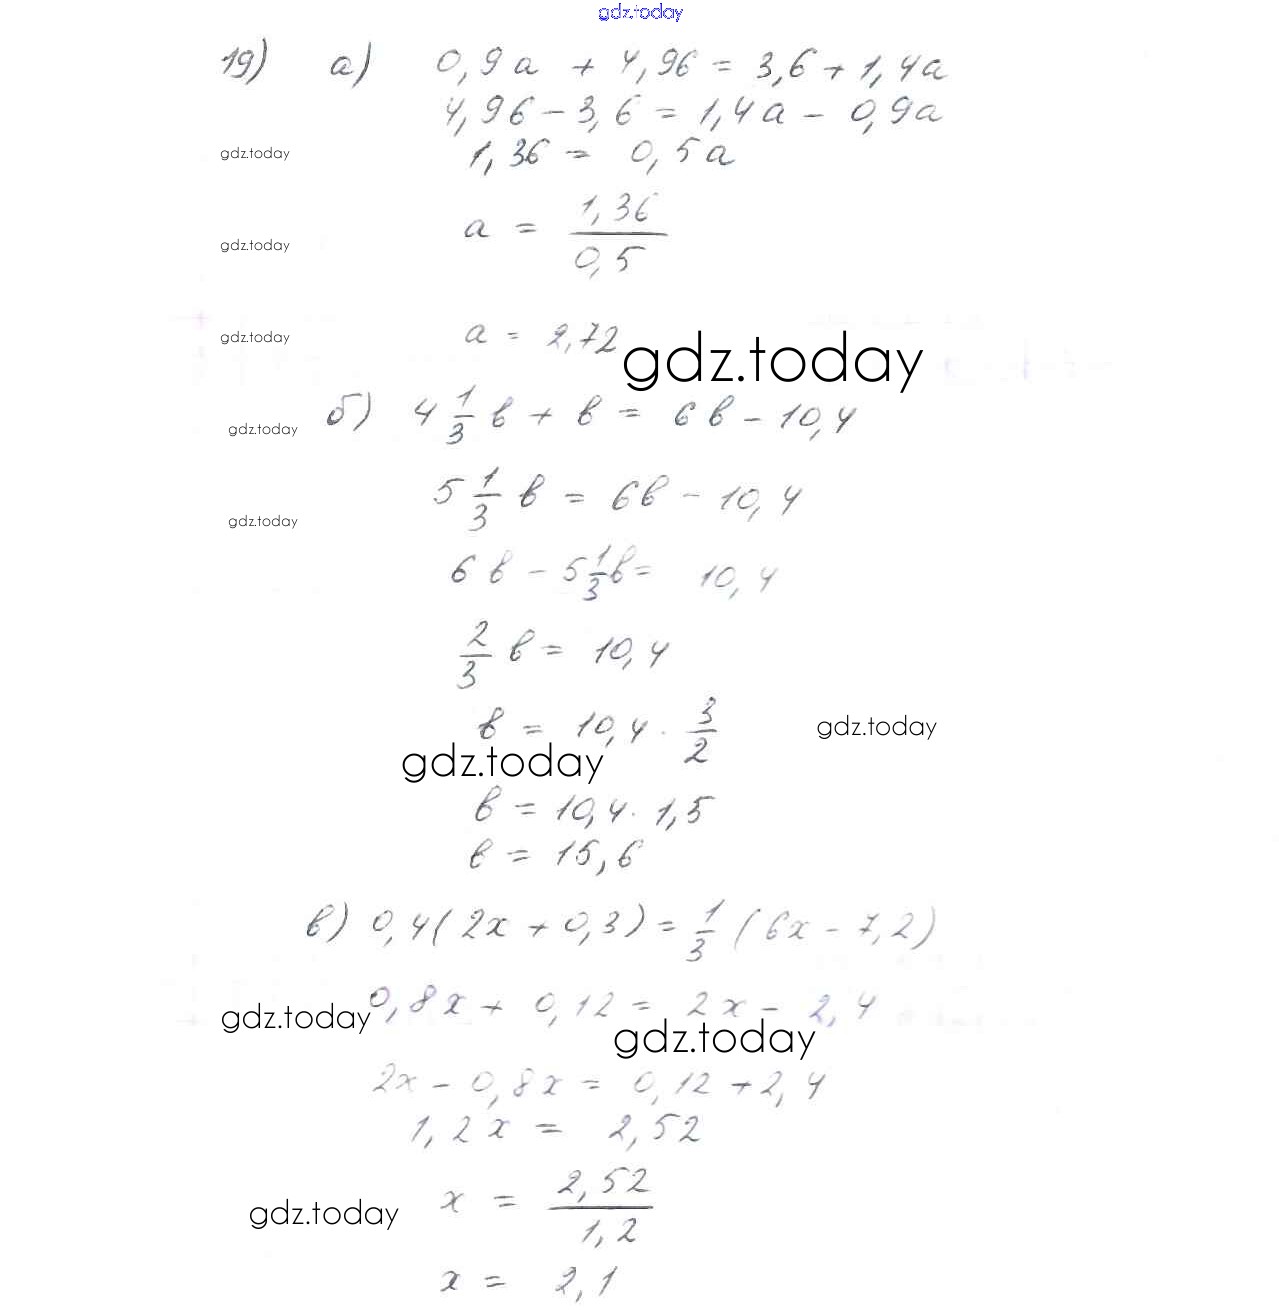 gdz.today
19) а) 0,9a + 4,96 = 3,6 + 1,4a
4,96 - 3,6 = 1,4a - 0,9a
gdz.today
1,36 = 0,5a
a = 1,36/0,5
gdz.today
gdz.today
a = 2,72
gdz.today
б) 4 1/3 в + в = 6в - 10,4
gdz.today
5 1/3 в = 6в - 10,4
gdz.today
6в - 5 1/3 в = 10,4
2/3 в = 10,4
в = 10,4 · 3/2
gdz.today
gdz.today
в = 10,4 · 1,5
в = 15,6
в) 0,4(2x + 0,3) = 1/3 (6x - 7,2)
0,8x + 0,12 = 2x - 2,4
gdz.today
gdz.today
2x - 0,8x = 0,12 + 2,4
1,2x = 2,52
x = 2,52/1,2
gdz.today
x = 2,1